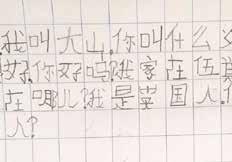 我叫大山.你叫什么
好.你好吗?我家在伍
在哪儿?我是英国人.
人?